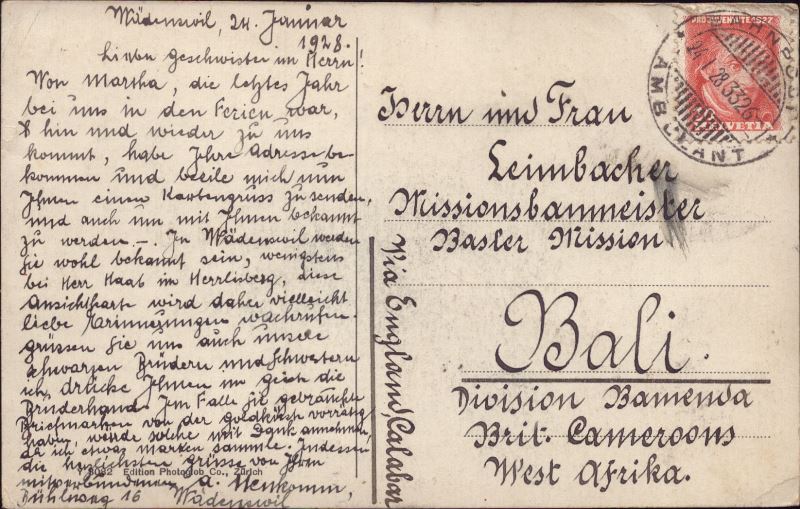 Wädenswil, 24. Januar
1928.
Liebe Geschwister im Herrn!
Von Martha, die letztes Jahr
bei uns in den Ferien war,
& hin und wieder zu uns
kommt, habe Ihre Adresse be-
kommen und beeile mich nun
Ihnen einen Kartengruss zu senden,
und auch um mit Ihnen bekannt
zu werden –. In Wädenswil werden
Sie wohl bekannt sein, wenigstens
bei Herr Haab im Herrlisberg, diese
Ansichtkarte wird daher vielleicht
liebe Erinnerungen wachrufen.
grüssen Sie uns auch unsere
schwarzen Brüdern und Schwestern
ich drücke Ihnen im geist die
Bruderhand. Im Falle Sie gebrauchte
Briefmarken von der goldküste vorrätig
haben, werde solche mit Dank annehmen,
da ich etwas marken sammle. Indessen
die herzlichsten Grüsse von Ihrem
mitverbundenen A. Henkomm,
Bühlweg 16 Wädenswil
8032 Edition Photoglob Co., Zürich
Via England, Calabar
PRO JUVENTUTE 1927
HELVETIA
BAHNPOST
24.I.28.3326
AMBULANT
Herrn und Frau
Leimbacher
Missionsbaumeister
Basler Mission
Bali.
Division Bamenda
Brit. Cameroons
West Afrika.